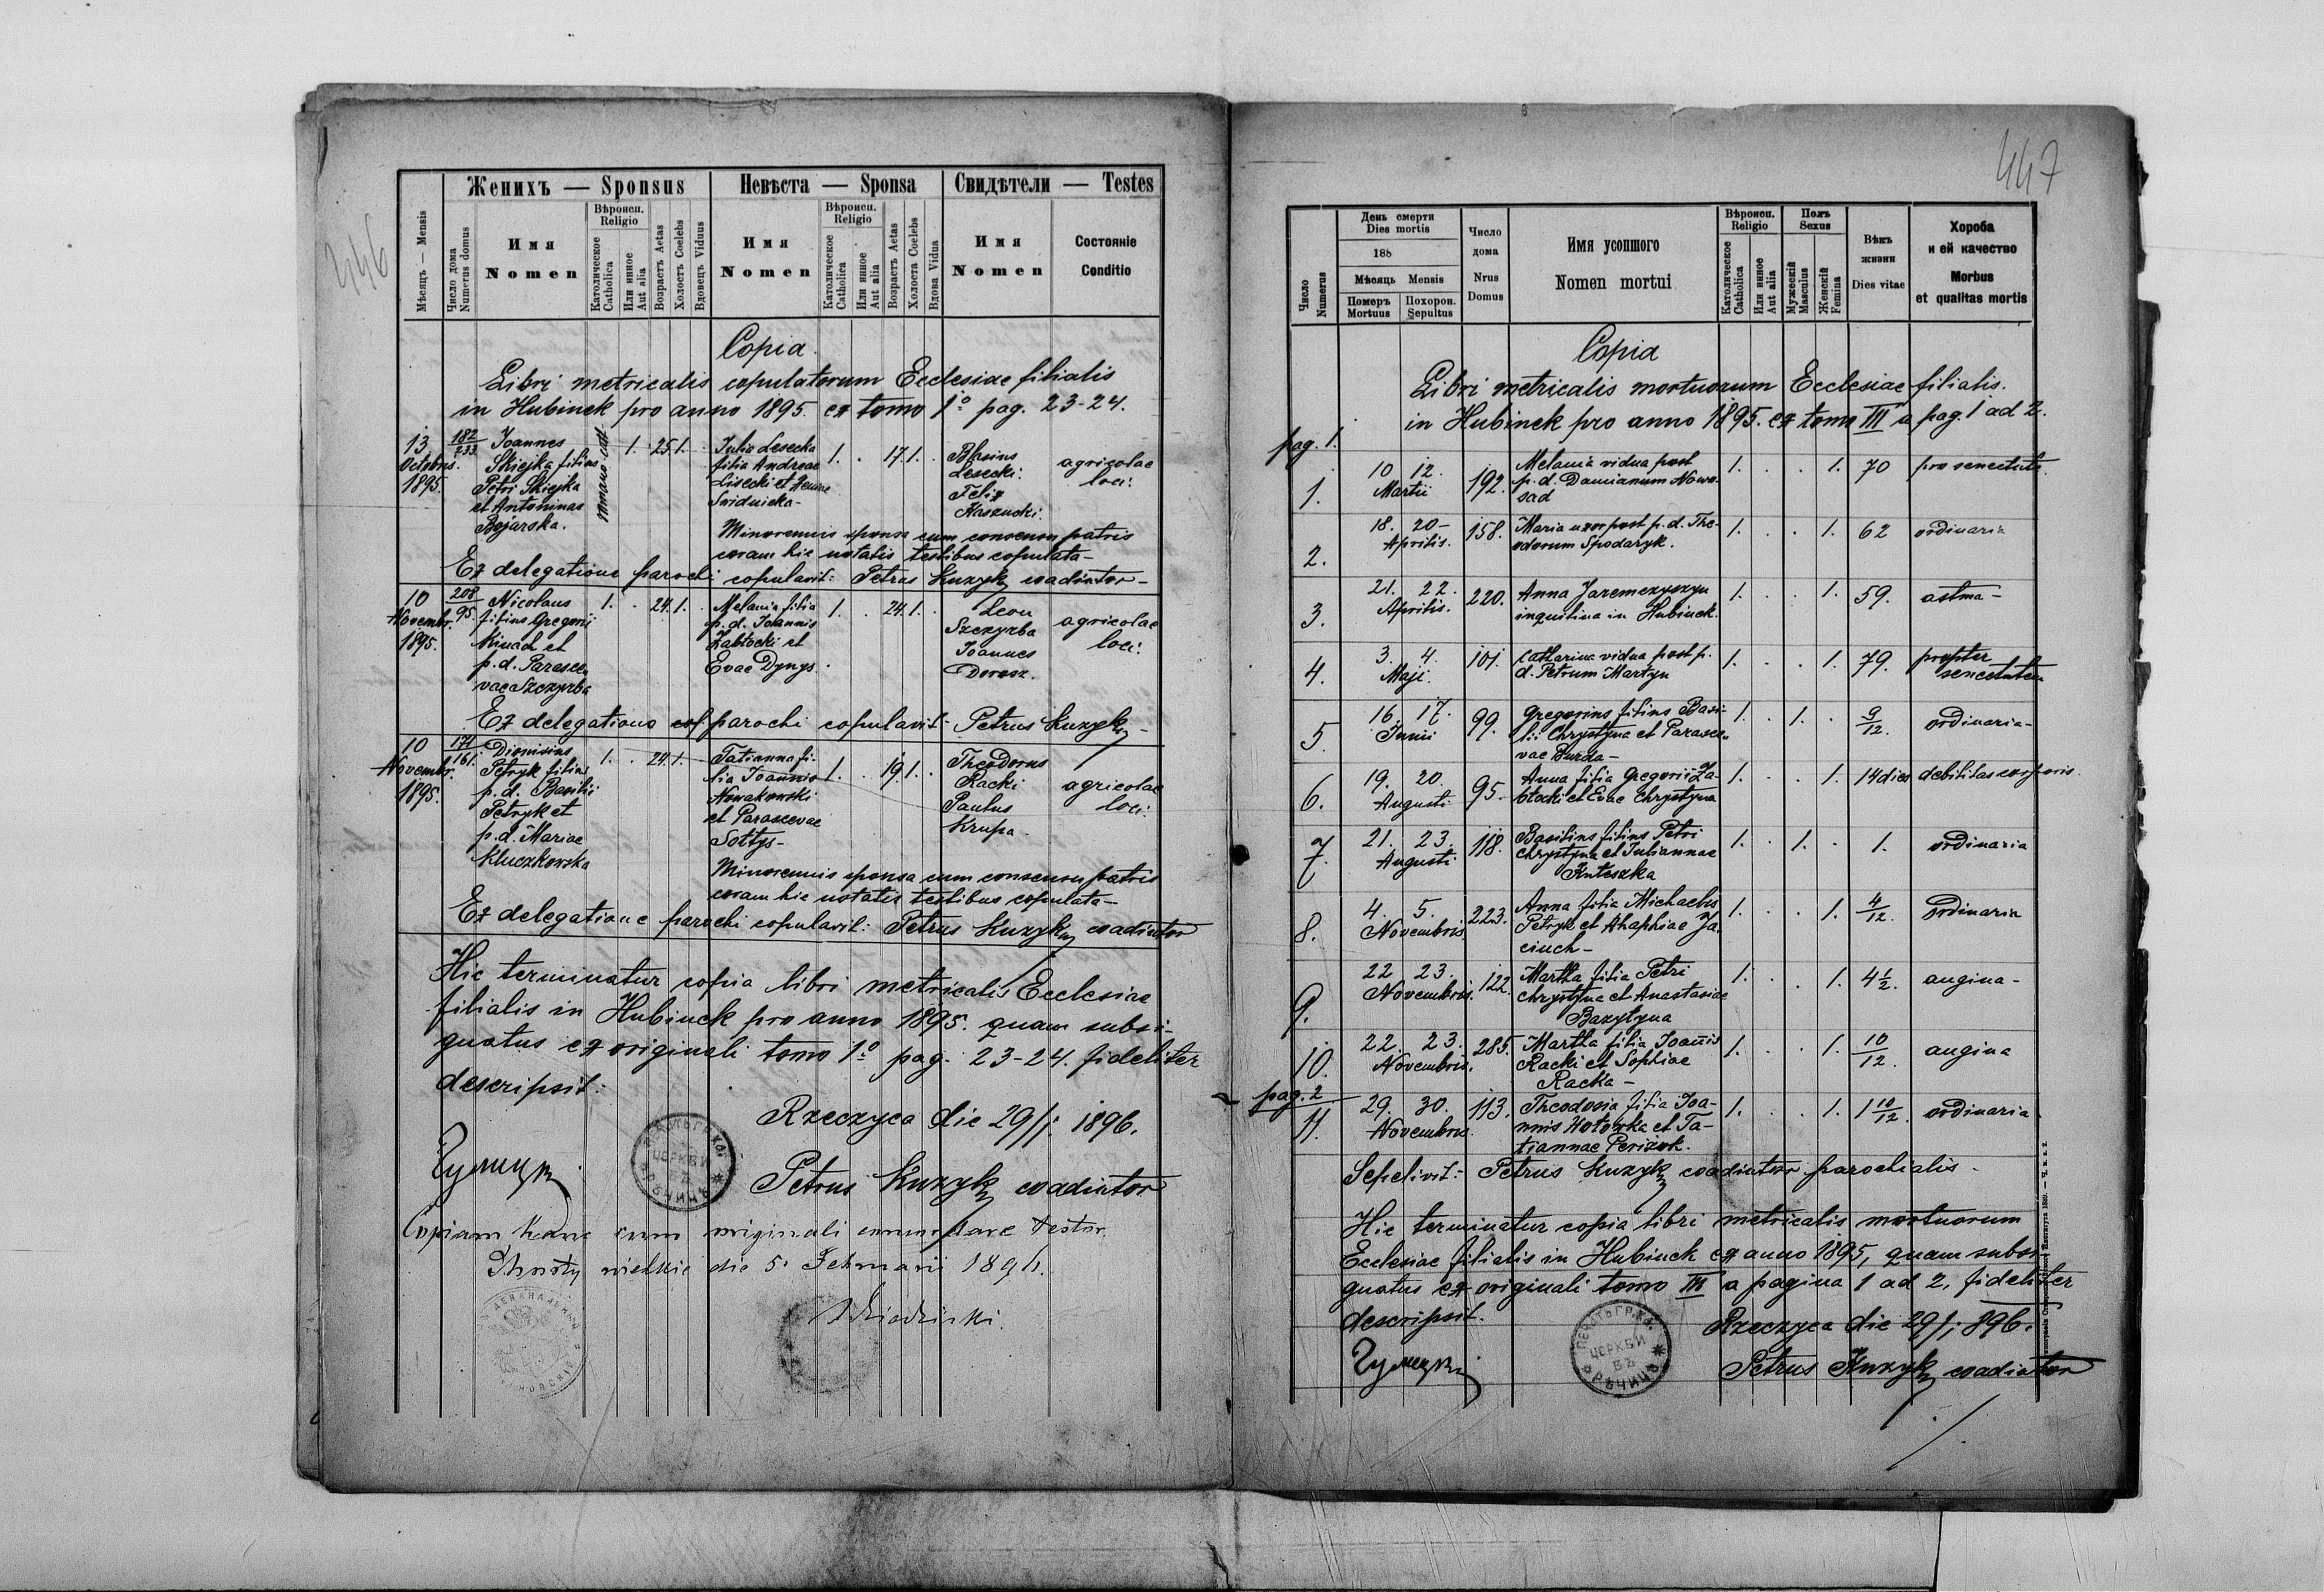 446
Женихъ — Sponsus
Невѣста — Sponsa
Свидѣтели — Testes
Мѣсяць — Mensis
Число дома
Numerus domus
Имя
Nomen
Вѣроисп.
Religio
Католическое
Catholica
Или инное
Aut alia
Возрастъ Aetas
Холостъ Coelebs
Вдовець Viduus
Имя
Nomen
Вѣроисп.
Religio
Католическое
Catholica
Или инное
Aut alia
Возрастъ Aetas
Холоста Coelebs
Вдова Vidua
Имя
Nomen
Состояніе
Conditio
Copia
Libri metricalis copulatorum Ecclesiae filialis
in Hubinek pro anno 1895. ex tomo 1º pag. 23-24.
13
Octobris.
1895.
182
233
Joannes
Skiejka filius
Petri Skiejka
et Antoninae
Bojarska.
romano cath.
1. 25 1.
Julia Lesecka
filia Andreae
Lisecki et Hennae
Svidnicka-
1. 17 1.
Blasius
Lesecki.
Felix
Kaszucki.
agricolae
loci.
Minorennis sponsa cum consensu patris
coram hic notatis testibus copulata-
Ex delegatione parochi copulavit: Petrus Kuzyk coadiutor-
10
Novembr.
1895.
208
95.
Nicolaus
filius Gregorii
Kinach et
p. d. Parasce-
vae Szczyrba
1. 24 1.
Melania filia
p. d. Joannis
Zabłocki et
Evae Dynys.
1. 24 1.
Leon
Szczyrba
Joannes
Dorosz.
agricolae
loci.
Ex delegatione parochi copulavit- Petrus Kuzyk-
10
Novembr.
1895.
171
161.
Dionisius
Petryk filius
p. d. Basilii
Petryk et
p. d. Mariae
Kluczkowska
1. 24 1.
Tatianna fi-
lia Joannis
Nowakowski
et Parascevae
Sołtys-
1. 19 1.
Theodorus
Racki
Paulus
Krupa.
agricolae
loci.
Minorennis sponsa cum consensu patris
coram hic notatis testibus copulata-
Ex delegatione parochi copulavit: Petrus Kuzyk coadiutor
Hic terminatur copia libri metricalis Ecclesiae
filialis in Hubinek pro anno 1895. quam subsi-
gnatus ex originali tomo 1º pag. 23-24. fideliter
descripsit:
Rzeczyca die 29/1. 1896.
Petrus Kuzyk coadiutor
Copiam hanc cum originali concordare testor.
die 5. Februarii 1896.
447
Число
Numerus
День смерти
Dies mortis
188
Мѣсяць Mensis
Померъ
Mortuus
Похорон.
Sepultus
Число
дома
Nrus
Domus
Имя усопшого
Nomen mortui
Вѣроисп.
Religio
Католическое
Catholica
Или инное
Aut alia
Полъ
Sexus
Мужескій
Masculus
Женскій
Femina
Вѣкъ
жизни
Dies vitae
Хороба
и ей качество
Morbus
et qualitas mortis
Copia
Libri metricalis mortuorum Ecclesiae filialis.
in Hubinek pro anno 1895. ex tomo III a pag. 1 ad 2.
pag. 1.
1.
10 12.
Martii
192.
Melania vidua post
p. d. Damianum Nowo-
sad
1. 1. 70 pro senectute.
2.
18. 20-
Aprilis.
158.
Maria uxor post p. d. The-
odorum Spodaryk.
1. 1. 62 ordinaria
3.
21. 22.
Aprilis.
220.
Anna Jaremczyszyn
inquilina in Hubinek.
1. 1. 59. astma-
4.
3. 4.
Maji.
101.
Catharina vidua post p.
d. Petrum Martyn
1. 1. 79. propter
senectutem
5.
16. 17.
Junii
99.
Gregorius filius Basi-
lii Chrystyna et Parasce-
vae Burda-
1. 1. 9/12. ordinaria-
6.
19. 20.
Augusti
95.
Anna filia Gregorii Za-
błocki et Evae Chrystyna
1. 1. 14 dies debilitas corporis.
7.
21. 23.
Augusti
118.
Basilius filius Petri
Chrystyna et Juliannae
1. 1. 1. ordinaria
8.
4. 5.
Novembris.
223.
Anna filia Michaelis
Petryk et Ahaphiae Ja-
ciuch-
1. 1. 4/12. ordinaria
9.
22 23.
Novembris.
122.
Martha filia Petri
Chrystyna et Anastasiae
Bazytyna
1. 1. 4½. angina-
10.
22. 23.
Novembris.
285.
Martha filia Joannis
Racki et Sophiae
Racka-
1. 1. 10/12. angina
pag. 2
11.
29. 30.
Novembris.
113.
Theodosia filia Joa-
nnis Hołowka et Ta-
tiannae Perizok.
1. 1. 1 10/12. ordinaria.
Sepelivit:- Petrus Kuzyk coadiutor parochialis-
Hic terminatur copia libri metricalis mortuorum
Ecclesiae filialis in Hubinek ex anno 1895, quam subsi-
gnatus ex originali tomo III a pagina 1 ad 2, fideliter
descripsit.
Rzeczyca die 29/1 896.
ПЕЧАТЬ ГР. К.
ЦЕРКВИ
ВЪ
РѢЧИЦѢ
Petrus Kuzyk coadiutor